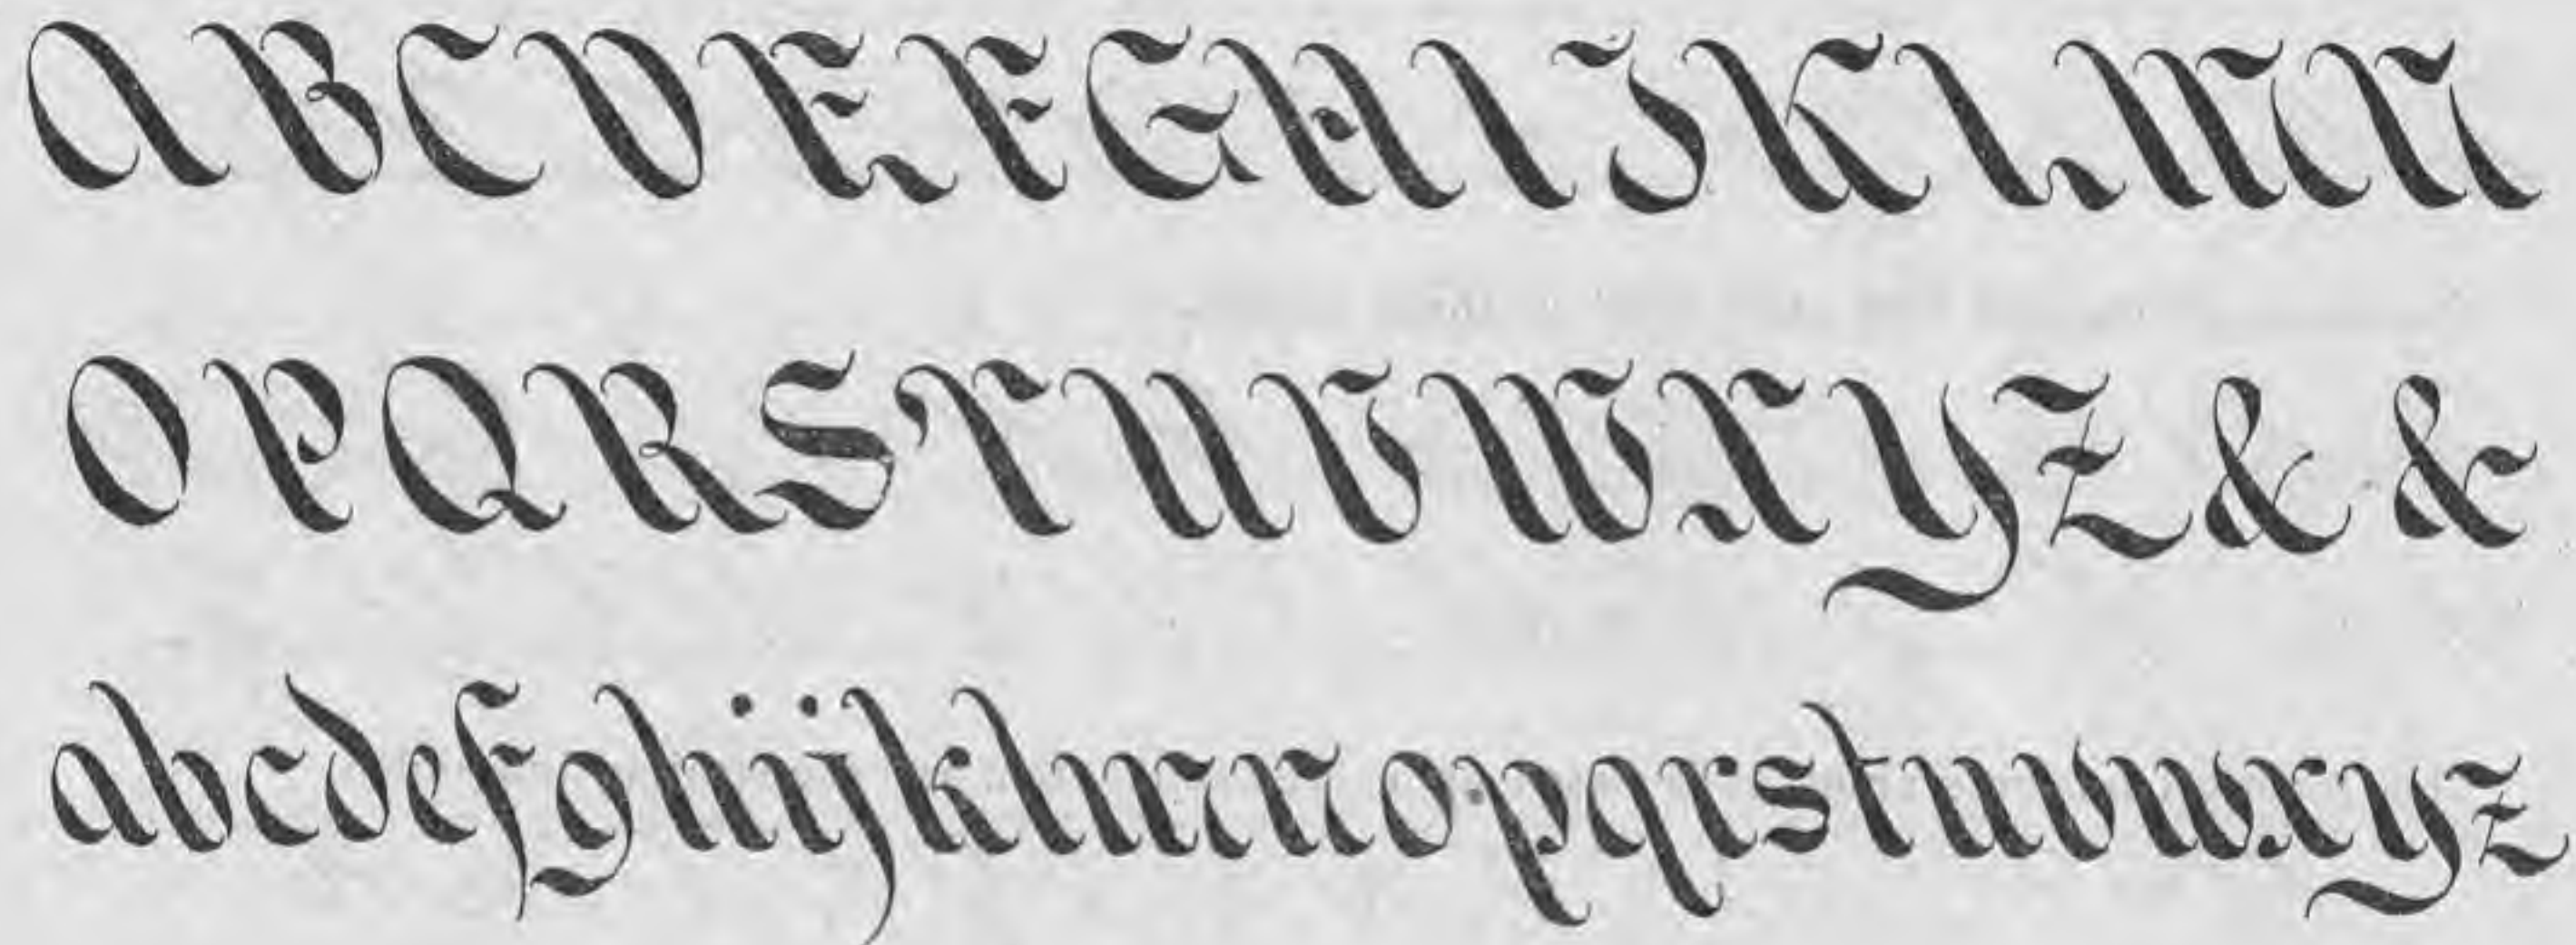 ABCDEFGHIJKLMN
OPQRSTUVWXYZ&&
abcdefghijklmnopqrstuvwxyz